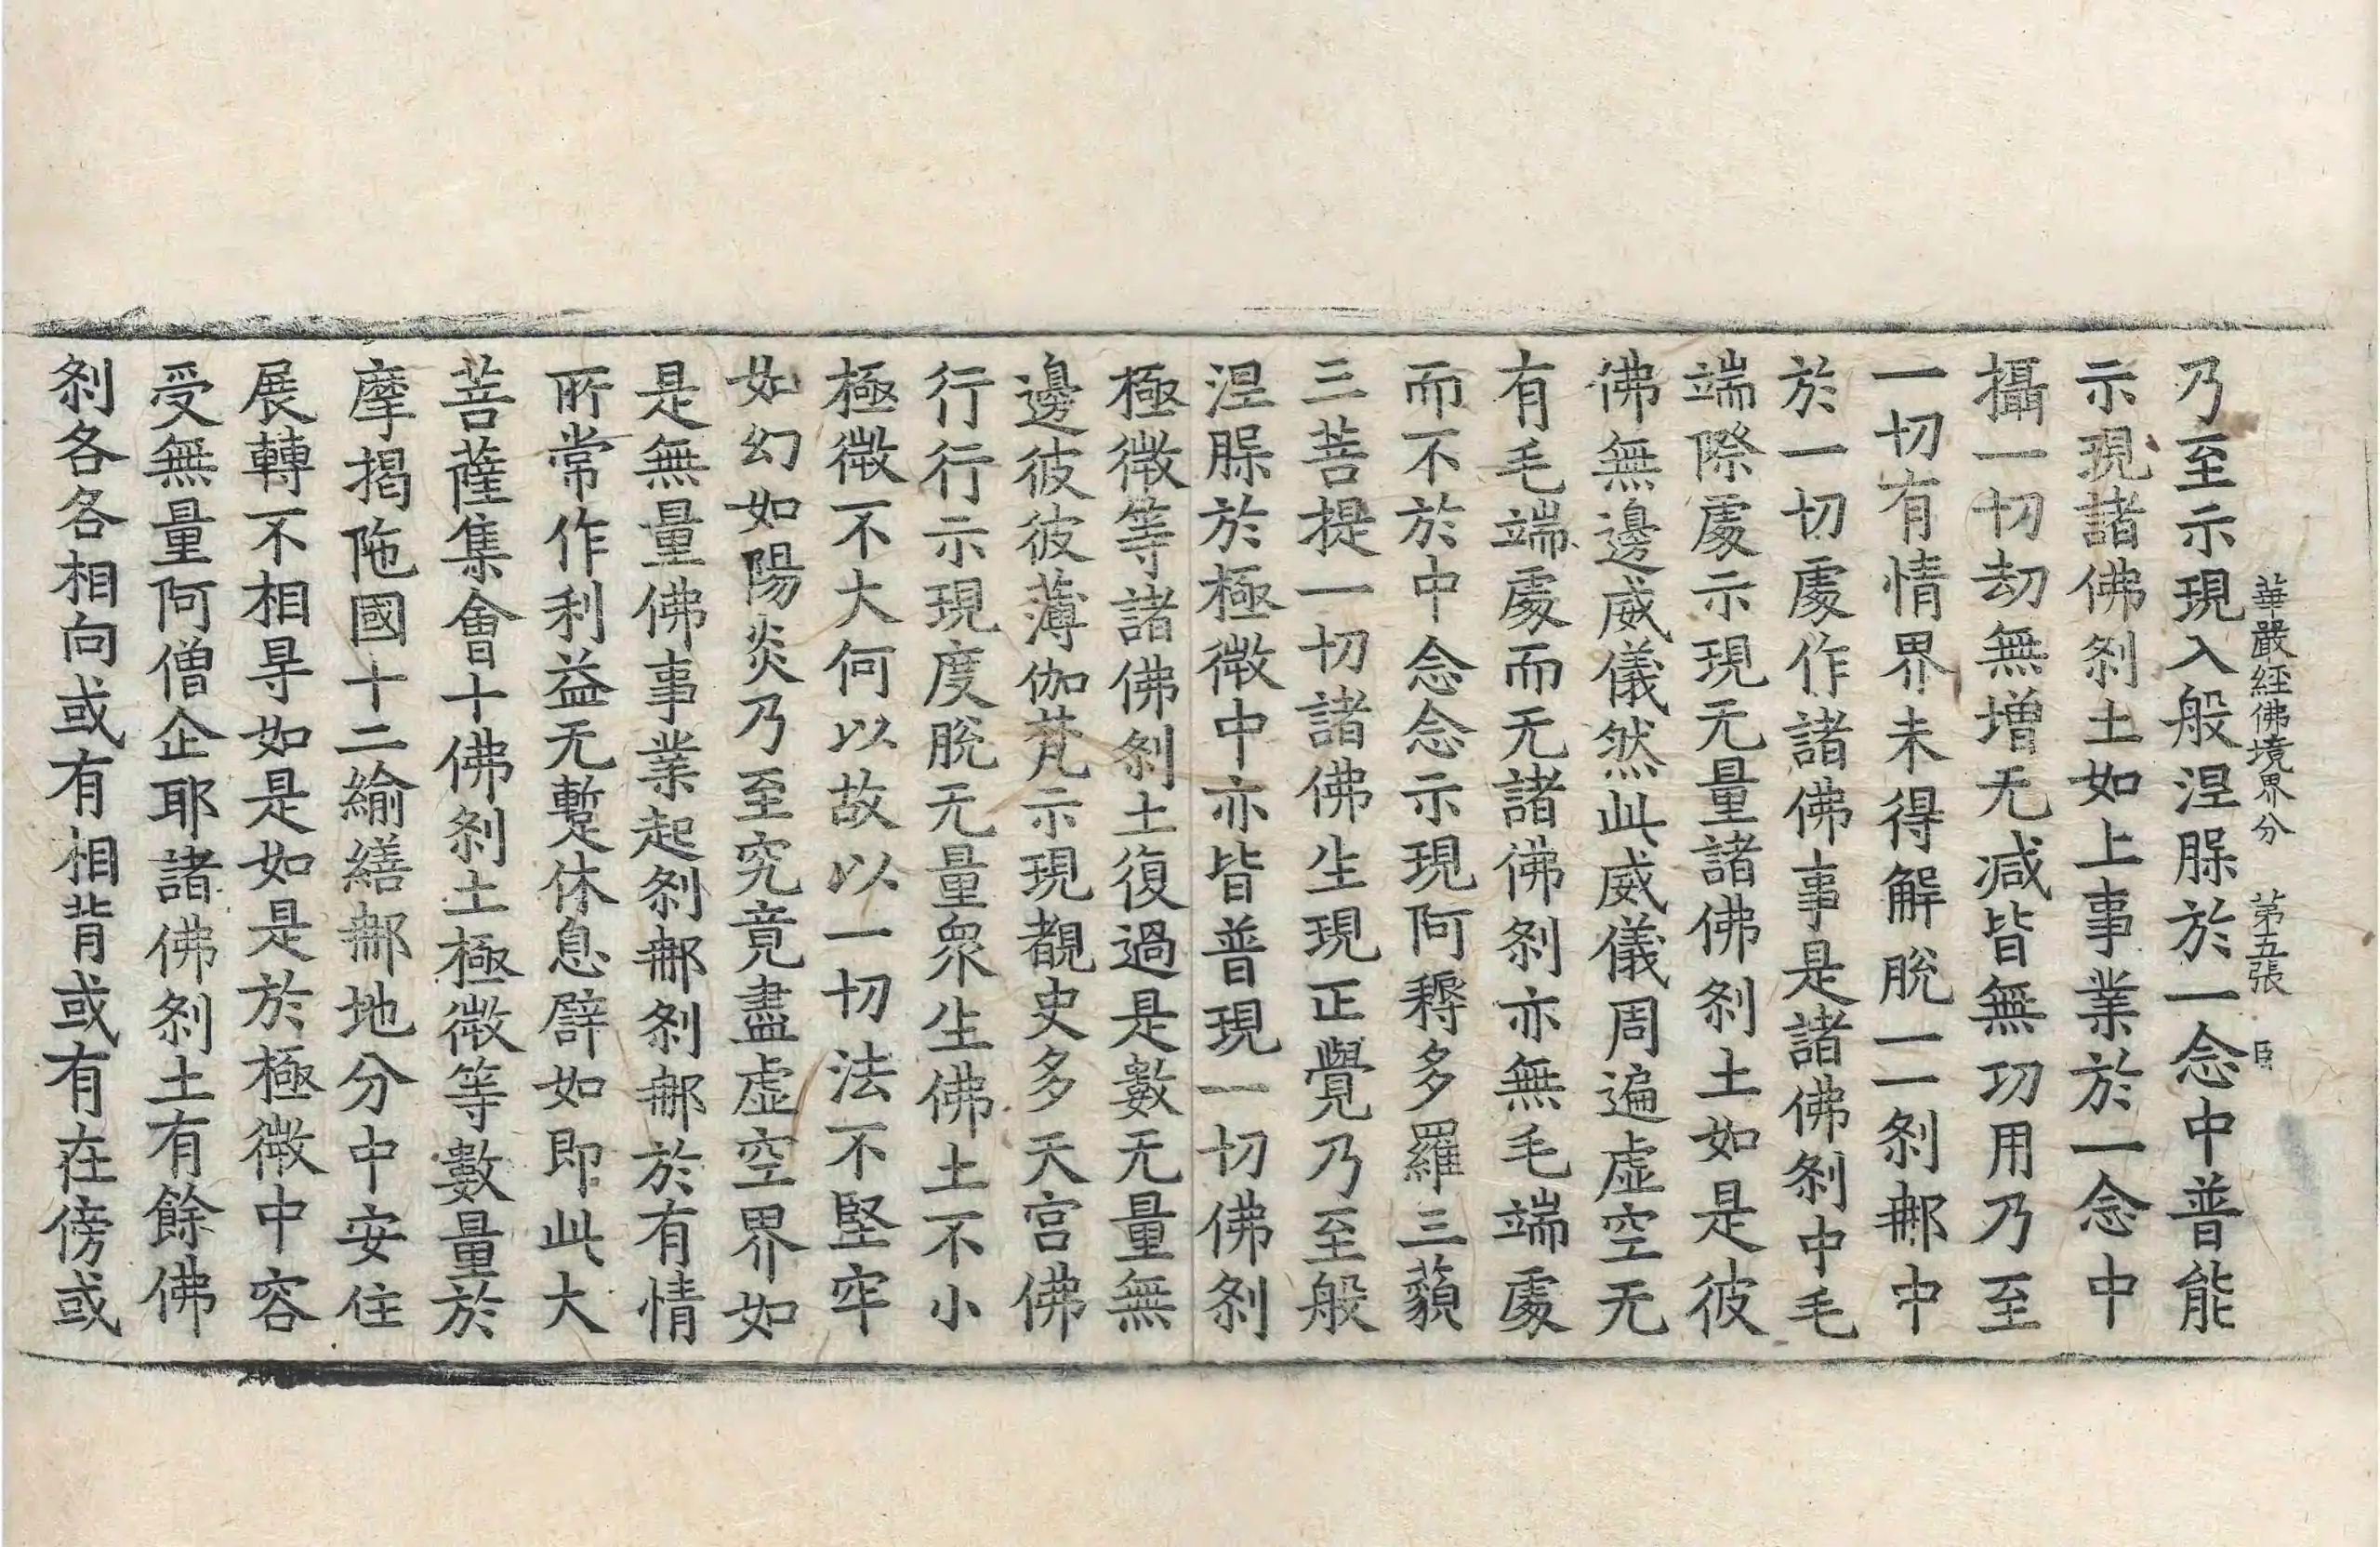 華嚴經佛境界分　第五張　臣
乃至示現入般涅槃於一念中普能
示現諸佛刹土如上事業於一念中
攝一切劫無增无減皆無功用乃至
一切有情界未得解脫一一刹那中
於一切處作諸佛事是諸佛刹中毛
端際處示現无量諸佛刹土如是彼
佛無邊威儀然此威儀周遍虛空无
有毛端處而无諸佛刹亦無毛端處
而不於中念念示現阿耨多羅三藐
三菩提一切諸佛生現正覺乃至般
涅槃於極微中亦皆普現一切佛刹
極微等諸佛刹土復過是數无量無
邊彼彼薄伽梵示現覩史多天宮佛
行行示現度脫无量衆生佛土不小
極微不大何以故以一切法不堅牢
如幻如陽炎乃至究竟盡虛空界如
是無量佛事業起刹那刹那於有情
所常作利益无暫休息譬如即此大
菩薩集會十佛刹土極微等數量於
摩揭陁國十二緰繕那地分中安住
展轉不相㝵如是如是於極微中容
受無量阿僧企耶諸佛刹土有餘佛
刹各各相向或有相背或有在傍或